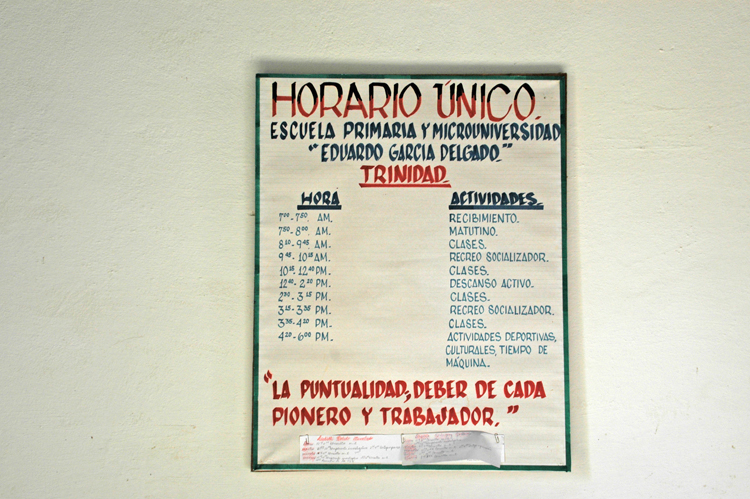 HORARIO ÚNICO.
ESCUELA PRIMARIA Y MICROUNIVERSIDAD
"EDUARDO GARCIA DELGADO."
TRINIDAD.
HORA ACTIVIDADES.
7⁰⁰-7⁵⁰. AM. RECIBIMIENTO.
7⁵⁰-8⁰⁰. AM. MATUTINO.
8¹⁰-9⁴⁵ AM. CLASES.
9⁴⁵-10¹⁵ AM. RECREO SOCIALIZADOR.
10¹⁵-12⁴⁰ PM. CLASES.
12⁴⁰-2²⁰ PM. DESCANSO ACTIVO.
2³⁰-3¹⁵ PM. CLASES.
3¹⁵-3³⁵ PM. RECREO SOCIALIZADOR.
3³⁵-4²⁰ PM. CLASES.
4²⁰-6⁰⁰ PM. ACTIVIDADES DEPORTIVAS,
CULTURALES, TIEMPO DE
MÁQUINA.
"LA PUNTUALIDAD, DEBER DE CADA
PIONERO Y TRABAJADOR."